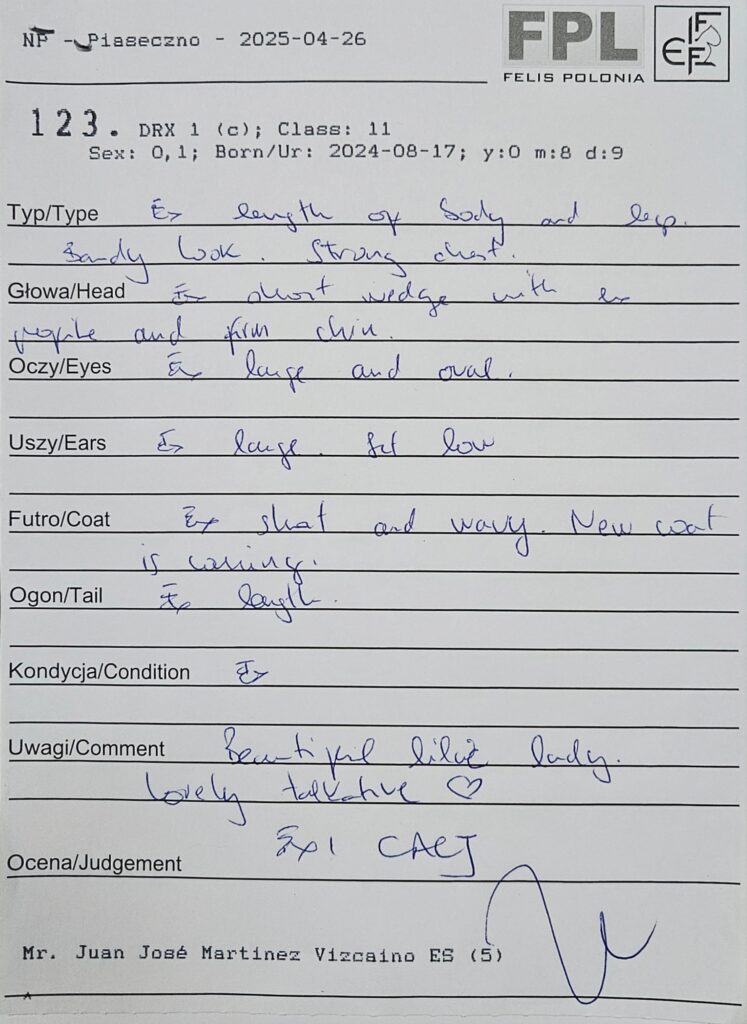 NP - Piaseczno - 2025-04-26
FPL
FELIS POLONIA
FIFE
123. DRX 1 (c); Class: 11
Sex: 0,1; Born/Ur: 2024-08-17; y:0 m:8 d:9
Typ/Type Ex length of body and legs.
Bandy look. Strong chest.
Głowa/Head Ex short wedge with ex
profile and firm chin.
Oczy/Eyes Ex large and oval.
Uszy/Ears Ex large. Set low
Futro/Coat Ex short and wavy. New coat
is coming.
Ogon/Tail Ex length.
Kondycja/Condition Ex
Uwagi/Comment Beautiful lilac lady.
Lovely talkative ♡
Ocena/Judgement Ex1 CACJ
Mr. Juan José Martinez Vizcaino ES (5)